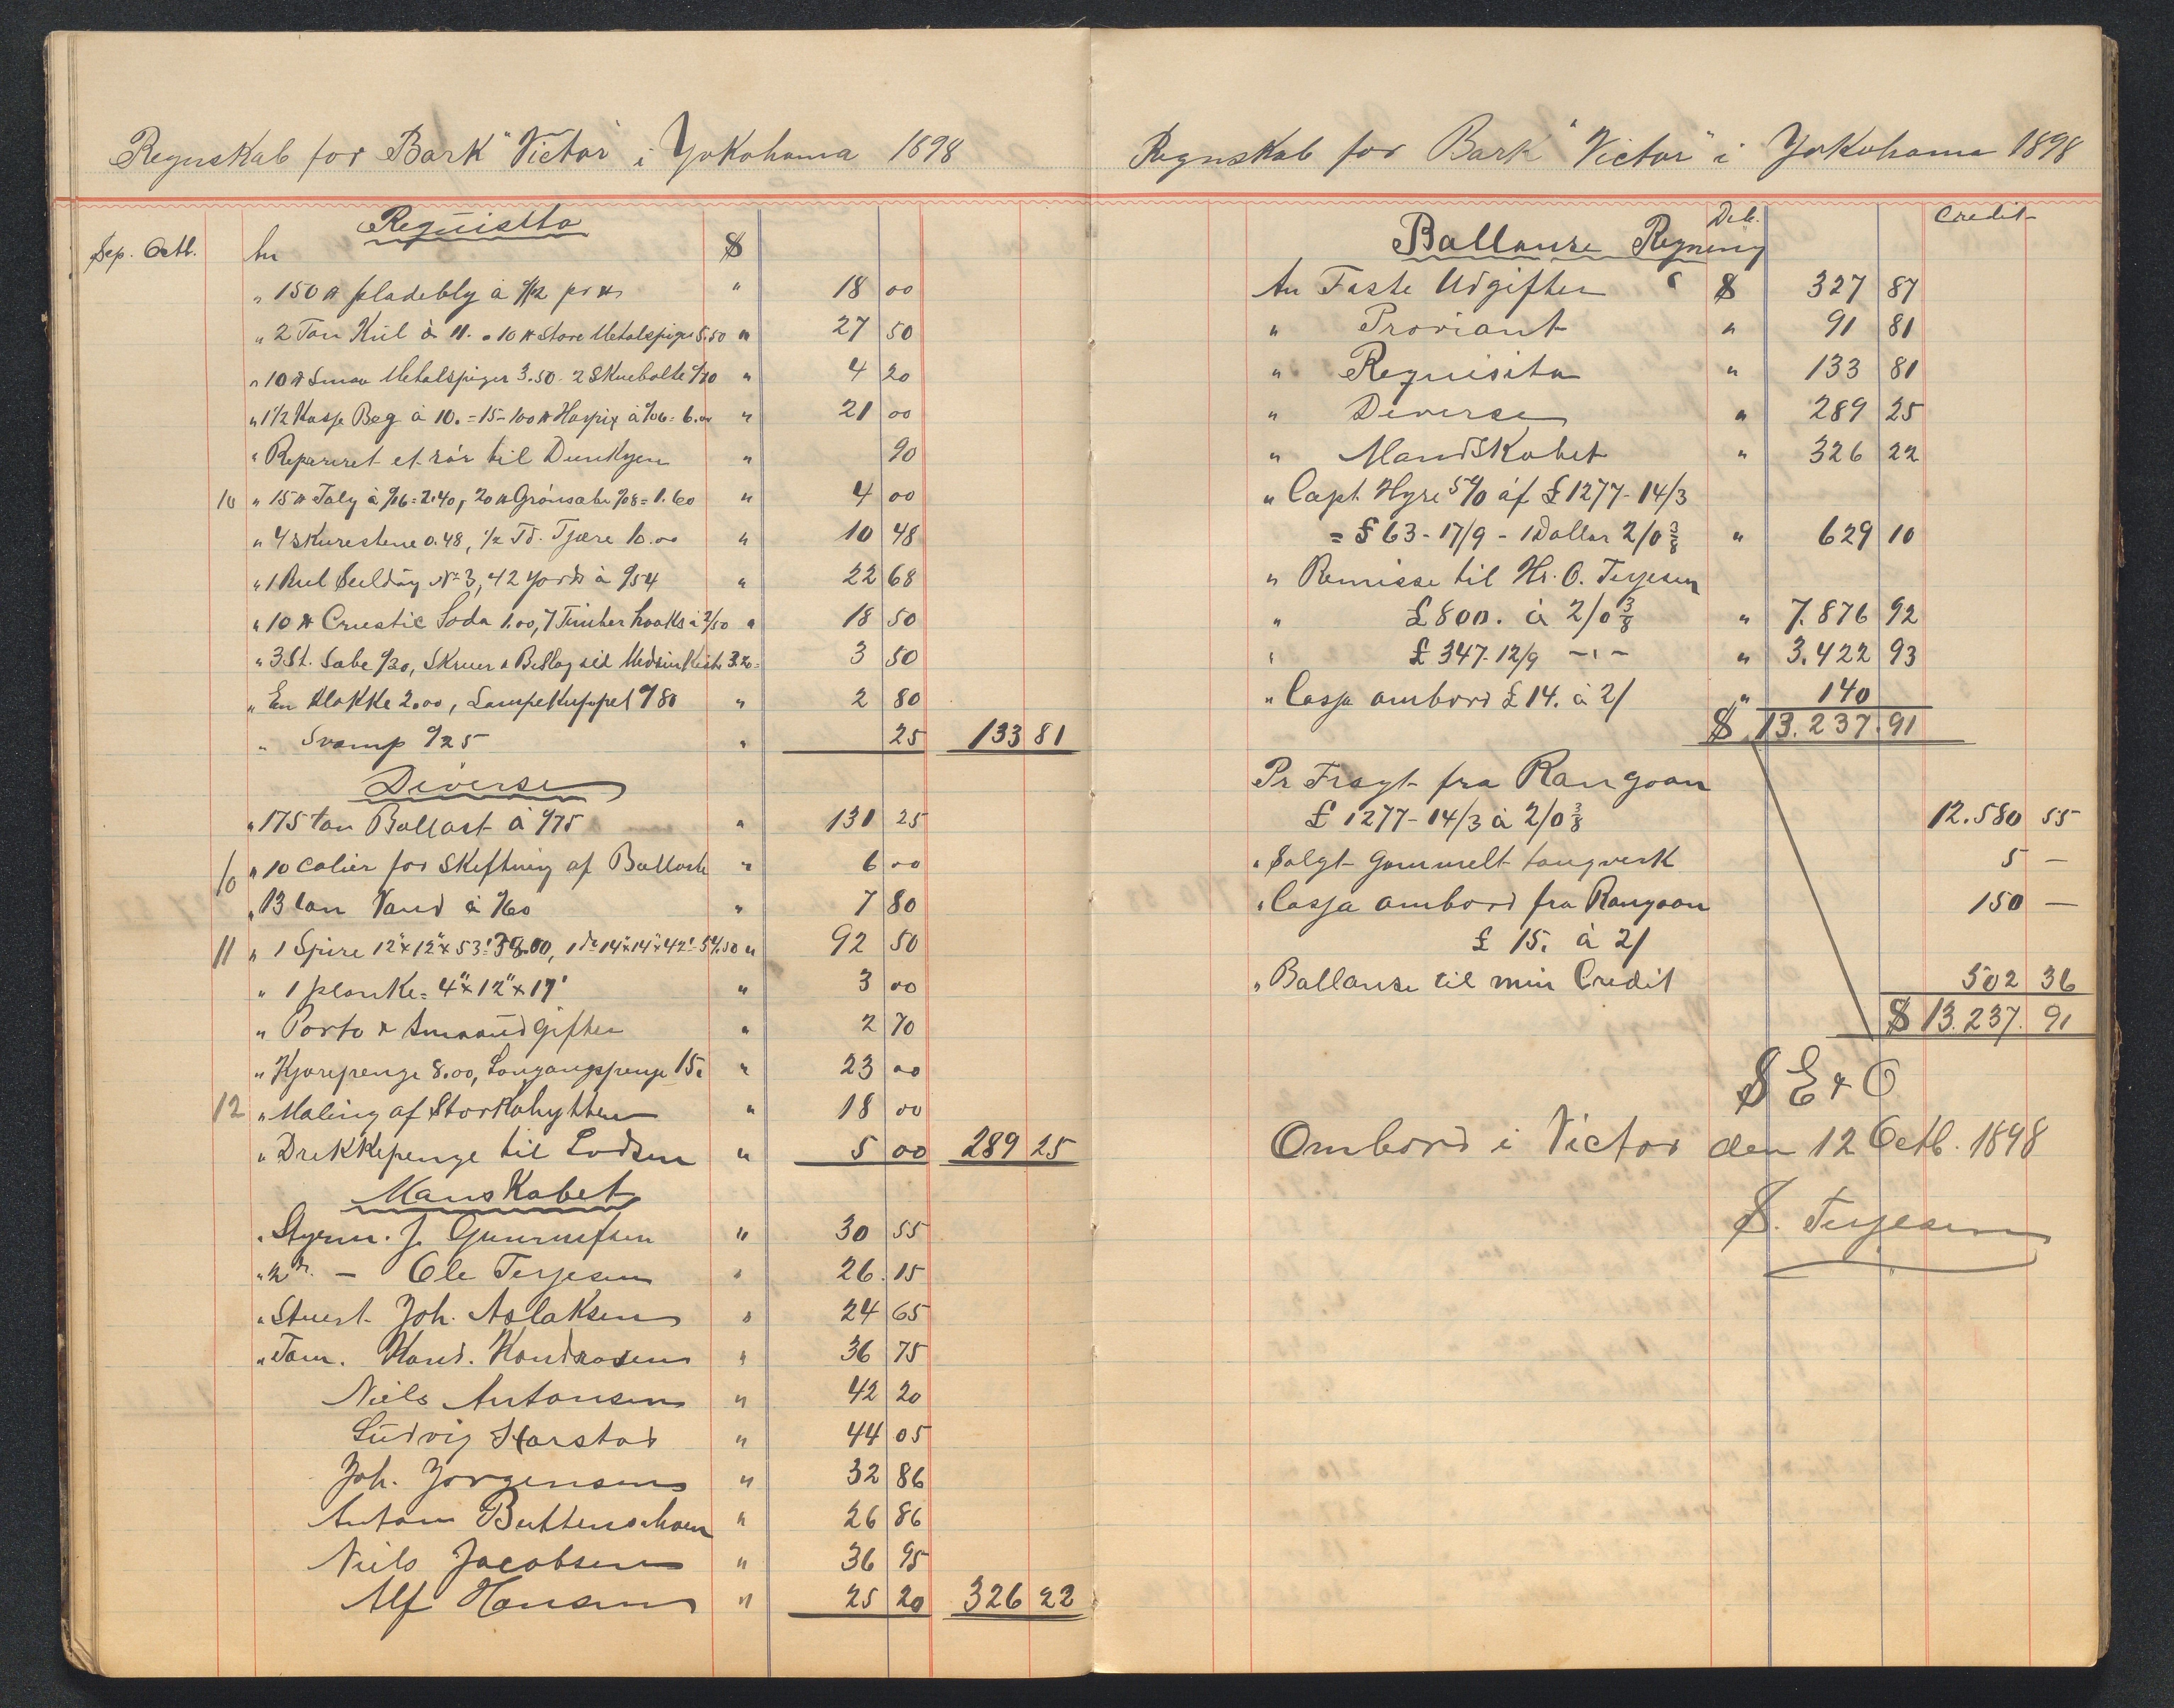 Regnskab for Bark "Victor" i Yokohama 1898
Requisitta
Sep. Octb. An $
" 150 ℔ pladebly à %12 pr ℔ " 18 00
" 2 Ton Kul à 11. " 10 ℔ Store Metalspiger 5.50 " 27 50
" 10 ℔ Smaa Metalspiger 3.50 2 Skuebolte %70 " 4 20
" 1 1/2 Kasse Beg à 10. = 15 - 100 ℔ Harpix à %06 = 6.00 " 21 00
" Repareret et rör til Dunkyen " 90
10 " 15 ℔ Talg à %16 = 2.40, 20 ℔ Grönsabe %08 = 1.60 " 4 00
" 4 Skurestene 0.48, 1/2 Td. Tjære 10.00 " 10 48
" 1 Rul Seildug No 3, 42 yards à %54 " 22 68
" 10 ℔ Crustic Soda 1.00, 7 Timber hooks à 2/50 " 18 50
" 3 St. Sabe %30, Skruer & Beslag sid Medsinkiste 3.20 = 3 50
" En Klokke 2.00, Lampekuppel %80 " 2 80
" Svamp %25 " 25 133 81
Diverse
" 175 ton Ballast à %75 " 131 25
10 " 10 Colier for Skiftning af Ballast " 6 00
" 13 ton Vand à %60 " 7 80
11 " 1 Spire 12"x12"x53' = 38.00, 1 do 14"x14"x42' = 54.50 " 92 50
" 1 planke = 4"x12"x17' " 3 00
" Porto & Smaaudgifter " 2 70
" Kjörepenge 8.00, Longangspenge 15. " 23 00
12 " Maling af Storkahytten " 18 00
" Drekkepenge til Lodsen " 5 00 289 25
Manskabet
" Styrm. J. Gunnufsen " 30 55
" 2n. — Ole Terjesen " 26 15
" Stuert Joh. Aslaksen " 24 65
" Töm. Kond. Kondradsen " 36 75
Niels Antonsen " 42 20
Ludvig Harstad " 44 05
Joh. Jorgensen " 32 86
Antom Buttenschoen " 26 86
Niels Jacobsen " 36 95
Alf Hansen " 25 20 326 22
Regnskab for Bark "Victor" i Yokohama 1898
Ballanse Regning Deb. Credit
An Faste Udgifter " $ 327 87
" Proviant " 91 81
" Requisita " 133 81
" Diverse " 289 25
" Mandskabet " 326 22
" Capt. Hyre 5% af £ 1277-14/3
= £ 63-17/9 - 1 Dollar 2/0 3/8 " 629 10
" Remisse til Hr. O. Terjesen
" £ 800. à 2/0 3/8 " 7.876 92
" £ 347-12/9 -"- " 3.422 93
" Cassa ombord £ 14. à 2/ " 140
$ 13.237.91
Pr Fragt fra Rangoon
£ 1277-14/3 à 2/0 3/8 12.580 55
" Solgt gammelt tougverk 5 —
" Cassa ombord fra Rangoon 150 —
£ 15. à 2/
" Ballanse til min Credit 502 36
$ 13.237. 91
S E & O
Ombord i Victor den 12 Octb. 1898
S. Terjesen